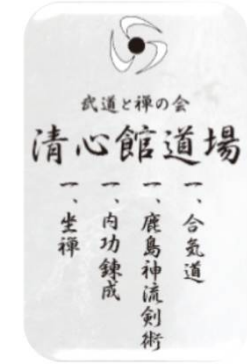 武道と禅の会
清心館道場
一、合気道
一、鹿島神流剣術
一、内功錬成
一、坐禅